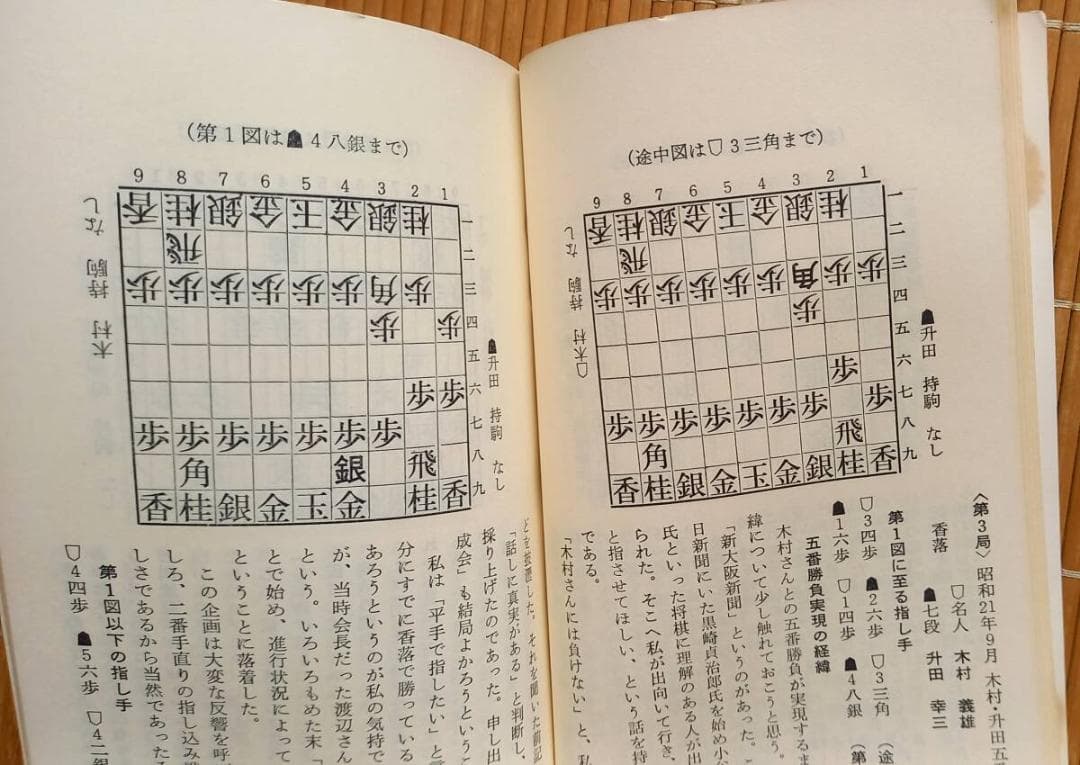 (途中図は☖3三角まで)
9 8 7 6 5 4 3 2 1
香桂銀金王金銀桂 一
飛 二
歩歩歩歩歩歩角歩歩 三
歩 四
五
歩 六
歩歩歩歩歩歩歩歩 七
角飛 八
香桂銀金玉金銀桂香 九
☗升田 持駒 なし
☖木村 持駒 なし
〈第3局〉昭和21年9月 木村・升田五
香落
☖名人 木村 義雄
☗七段 升田 幸三
第1図に至る指し手
☖3四歩 ☗2六歩 ☖3三角 (途
☗1六歩 ☖1四歩 ☗4八銀 (第
五番勝負実現の経緯
木村さんとの五番勝負が実現するま
緯について少し触れておこうと思う。
「新大阪新聞」というのがあった。
日新聞にいた黒崎貞治郎氏を始め小
氏といった将棋に理解のある人が出
られた。そこへ私が出向いて行き、
と指させてほしい、という話を持
である。
「木村さんには負けない」と、私
(第1図は☗4八銀まで)
9 8 7 6 5 4 3 2 1
香桂銀金王金銀桂 一
飛 二
歩歩歩歩歩歩角歩 三
歩歩 四
五
歩歩 六
歩歩歩歩歩歩歩 七
角銀飛 八
香桂銀金玉金桂香 九
☗升田 持駒 なし
木村 持駒 なし
「話しに真実がある」と判断し、
採り上げたのであった。申し出
成会」も結局よかろうというこ
私は「平手で指したい」と
分にすでに香落で勝っている
あろうというのが私の気持で
が、当時会長だった渡辺さん
という。いろいろもめた末「
とで始め、進行状況によって
ということに落着した。
この企画は大変な反響を呼
しろ、二番手直りの指し込み
しさであるから当然であった
第1図以下の指し手
☖4四歩 ☗5六歩 ☖4二銀